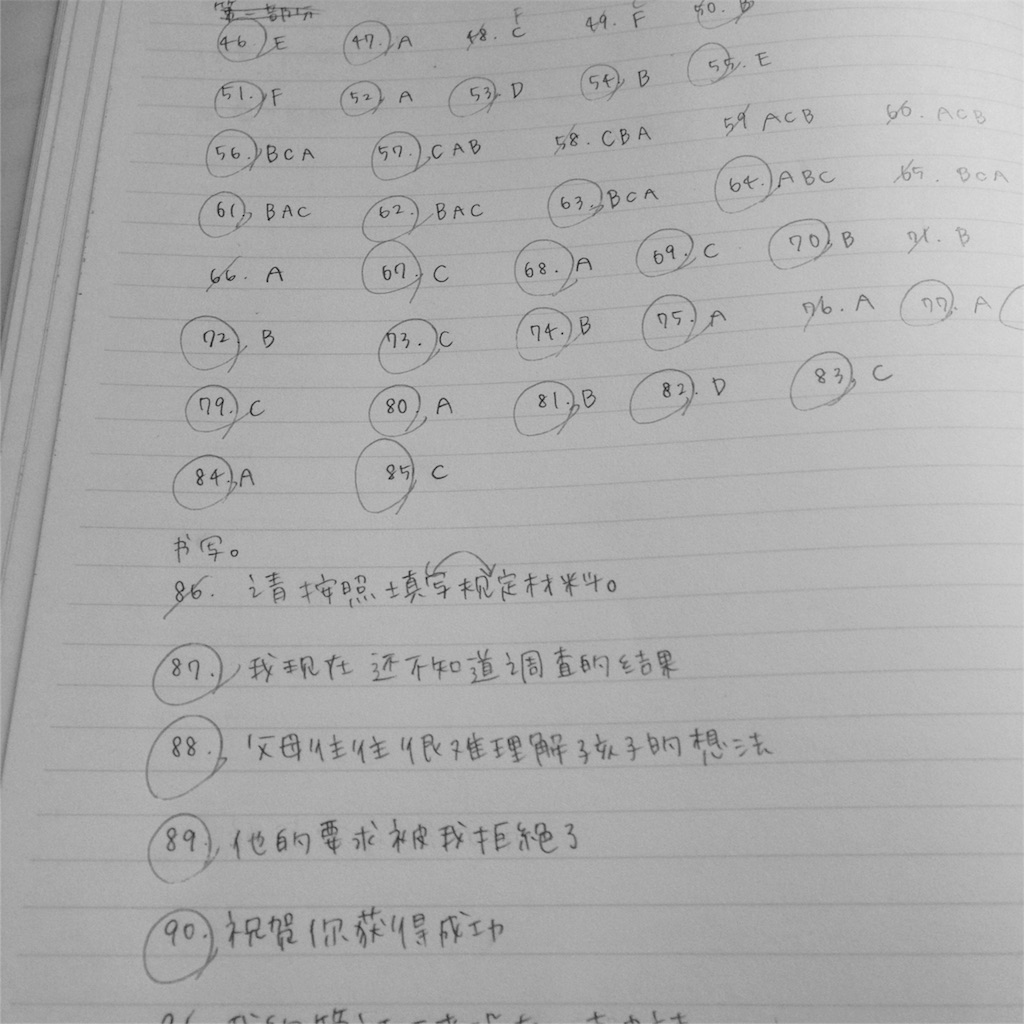 第一部分
46. E 47. A 48. C F 49. F 50. B
51. F 52. A 53. D 54. B 55. E
56. BCA 57. CAB 58. CBA 59 ACB 60. ACB
61. BAC 62. BAC 63. BCA 64. ABC 65. BCA
66. A 67. C 68. A 69. C 70. B 71. B
72. B 73. C 74. B 75. A 76. A 77. A
79. C 80. A 81. B 82. D 83. C
84. A 85. C
书写。
86. 请按照填写规定材料。
87. 我现在还不知道调查的结果
88. 父母往往很难理解孩子的想法
89. 他的要求被我拒絕了
90. 祝贺你获得成功